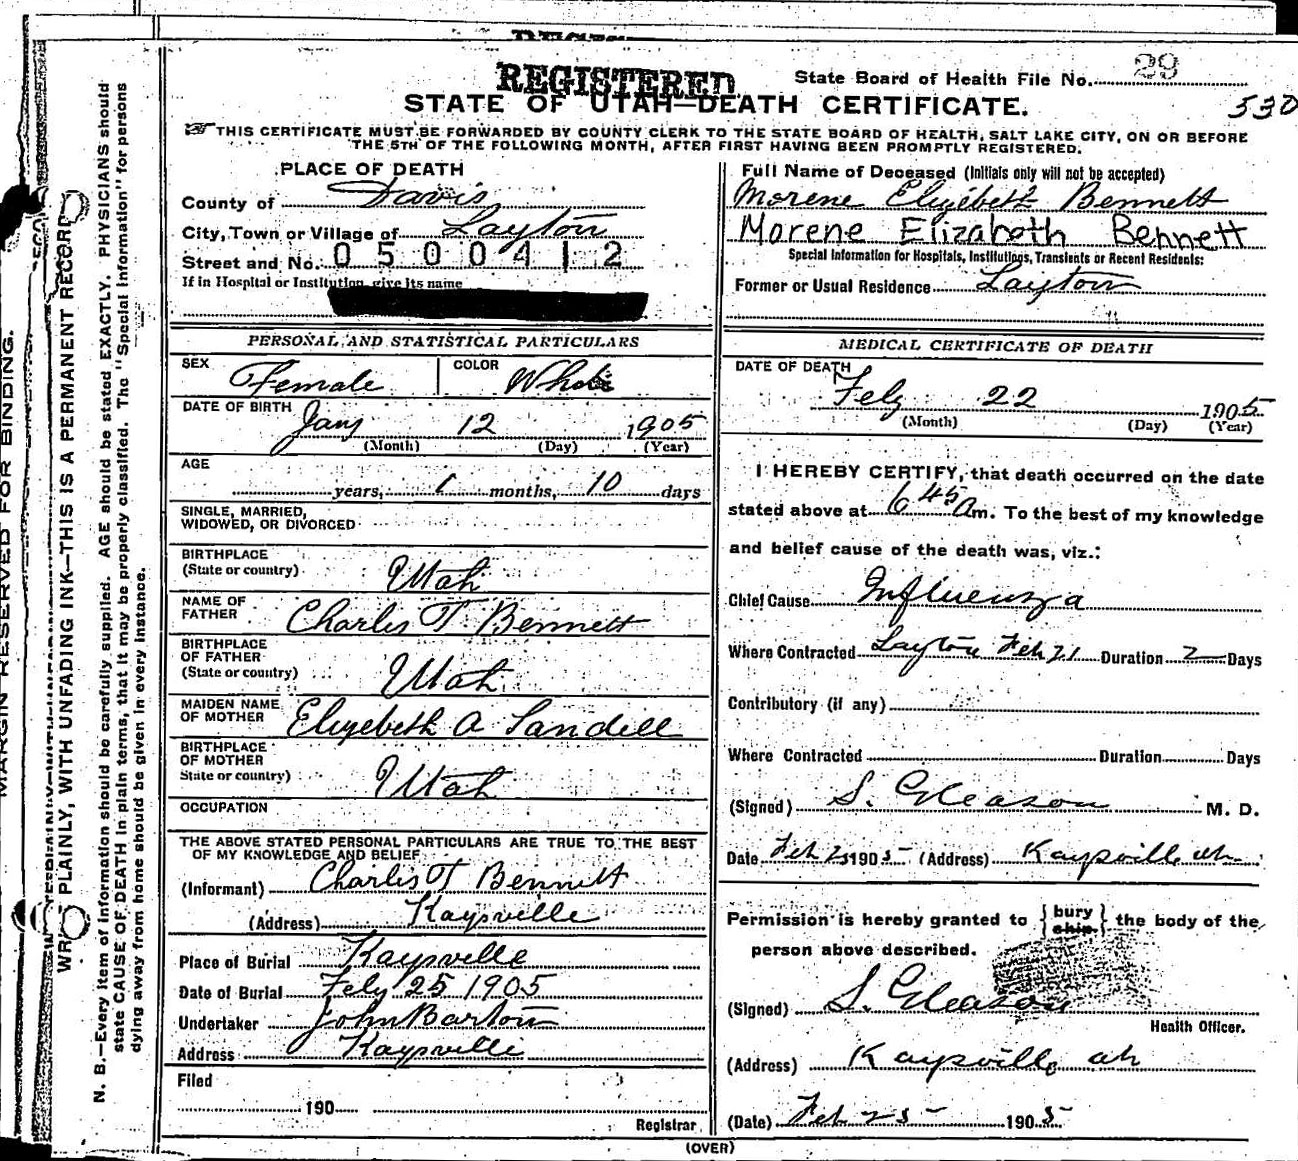 REGISTERED
State Board of Health File No. 29
530
STATE OF UTAH—DEATH CERTIFICATE.
THIS CERTIFICATE MUST BE FORWARDED BY COUNTY CLERK TO THE STATE BOARD OF HEALTH, SALT LAKE CITY, ON OR BEFORE
THE 5TH OF THE FOLLOWING MONTH, AFTER FIRST HAVING BEEN PROMPTLY REGISTERED.
PLACE OF DEATH
County of Davis
City, Town or Village of Layton
Street and No. 0500412
If in Hospital or Institution, give its name
Full Name of Deceased (Initials only will not be accepted)
Morene Elizebeth Bennett
Morene Elizabeth Bennett
Special Information for Hospitals, Institutings, Transients or Recent Residents:
Former or Usual Residence Layton
PERSONAL AND STATISTICAL PARTICULARS
SEX Female
COLOR White
DATE OF BIRTH Jany 12 1905
(Month) (Day) (Year)
AGE
years, 1 months, 10 days
SINGLE, MARRIED,
WIDOWED, OR DIVORCED
BIRTHPLACE
(State or country) Utah
NAME OF
FATHER Charles T Bennett
BIRTHPLACE
OF FATHER
(State or country) Utah
MAIDEN NAME
OF MOTHER Elizebeth A Sandell
BIRTHPLACE
OF MOTHER
State or country) Utah
OCCUPATION
THE ABOVE STATED PERSONAL PARTICULARS ARE TRUE TO THE BEST
OF MY KNOWLEDGE AND BELIEF
(Informant) Charles T Bennett
(Address) Kaysville
Place of Burial Kaysville
Date of Burial Feby 25 1905
Undertaker John Barton
Address Kaysville
Filed
190
Registrar
MEDICAL CERTIFICATE OF DEATH
DATE OF DEATH
Feby 22 1905
(Month) (Day) (Year)
I HEREBY CERTIFY, that death occurred on the date
stated above at 6 45 Am. To the best of my knowledge
and belief cause of the death was, viz.:
Chief Cause Influenza
Where Contracted Layton Feb 21 Duration 2 Days
Contributory (if any)
Where Contracted Duration Days
(Signed) S. Gleason M. D.
Date Feb 1905 (Address) Kaysville
Permission is hereby granted to { bury ship. } the body of the
person above described.
(Signed) S. Gleason
Health Officer.
(Address) Kaysville
(Date) Feb 25 1905
(OVER)
MARGIN RESERVED FOR BINDING.
WRITE PLAINLY, WITH UNFADING INK—THIS IS A PERMANENT RECORD
N. B.—Every item of information should be carefully supplied. AGE should be stated EXACTLY. PHYSICIANS should
state CAUSE OF DEATH in plain terms, that it may be properly classified. The "Special Information" for persons
dying away from home should be given in every instance.